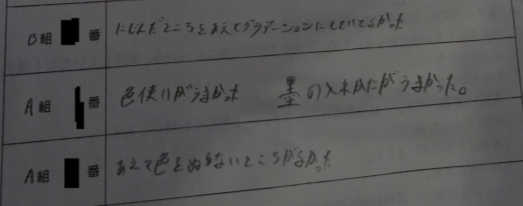 B組 番 にじんだところをあえてグラデーションにしていてよかった
A組 番 色使いがうまかった 墨の文れかたがうまかった。
A組 番 あえて色をぬらないところがよかった